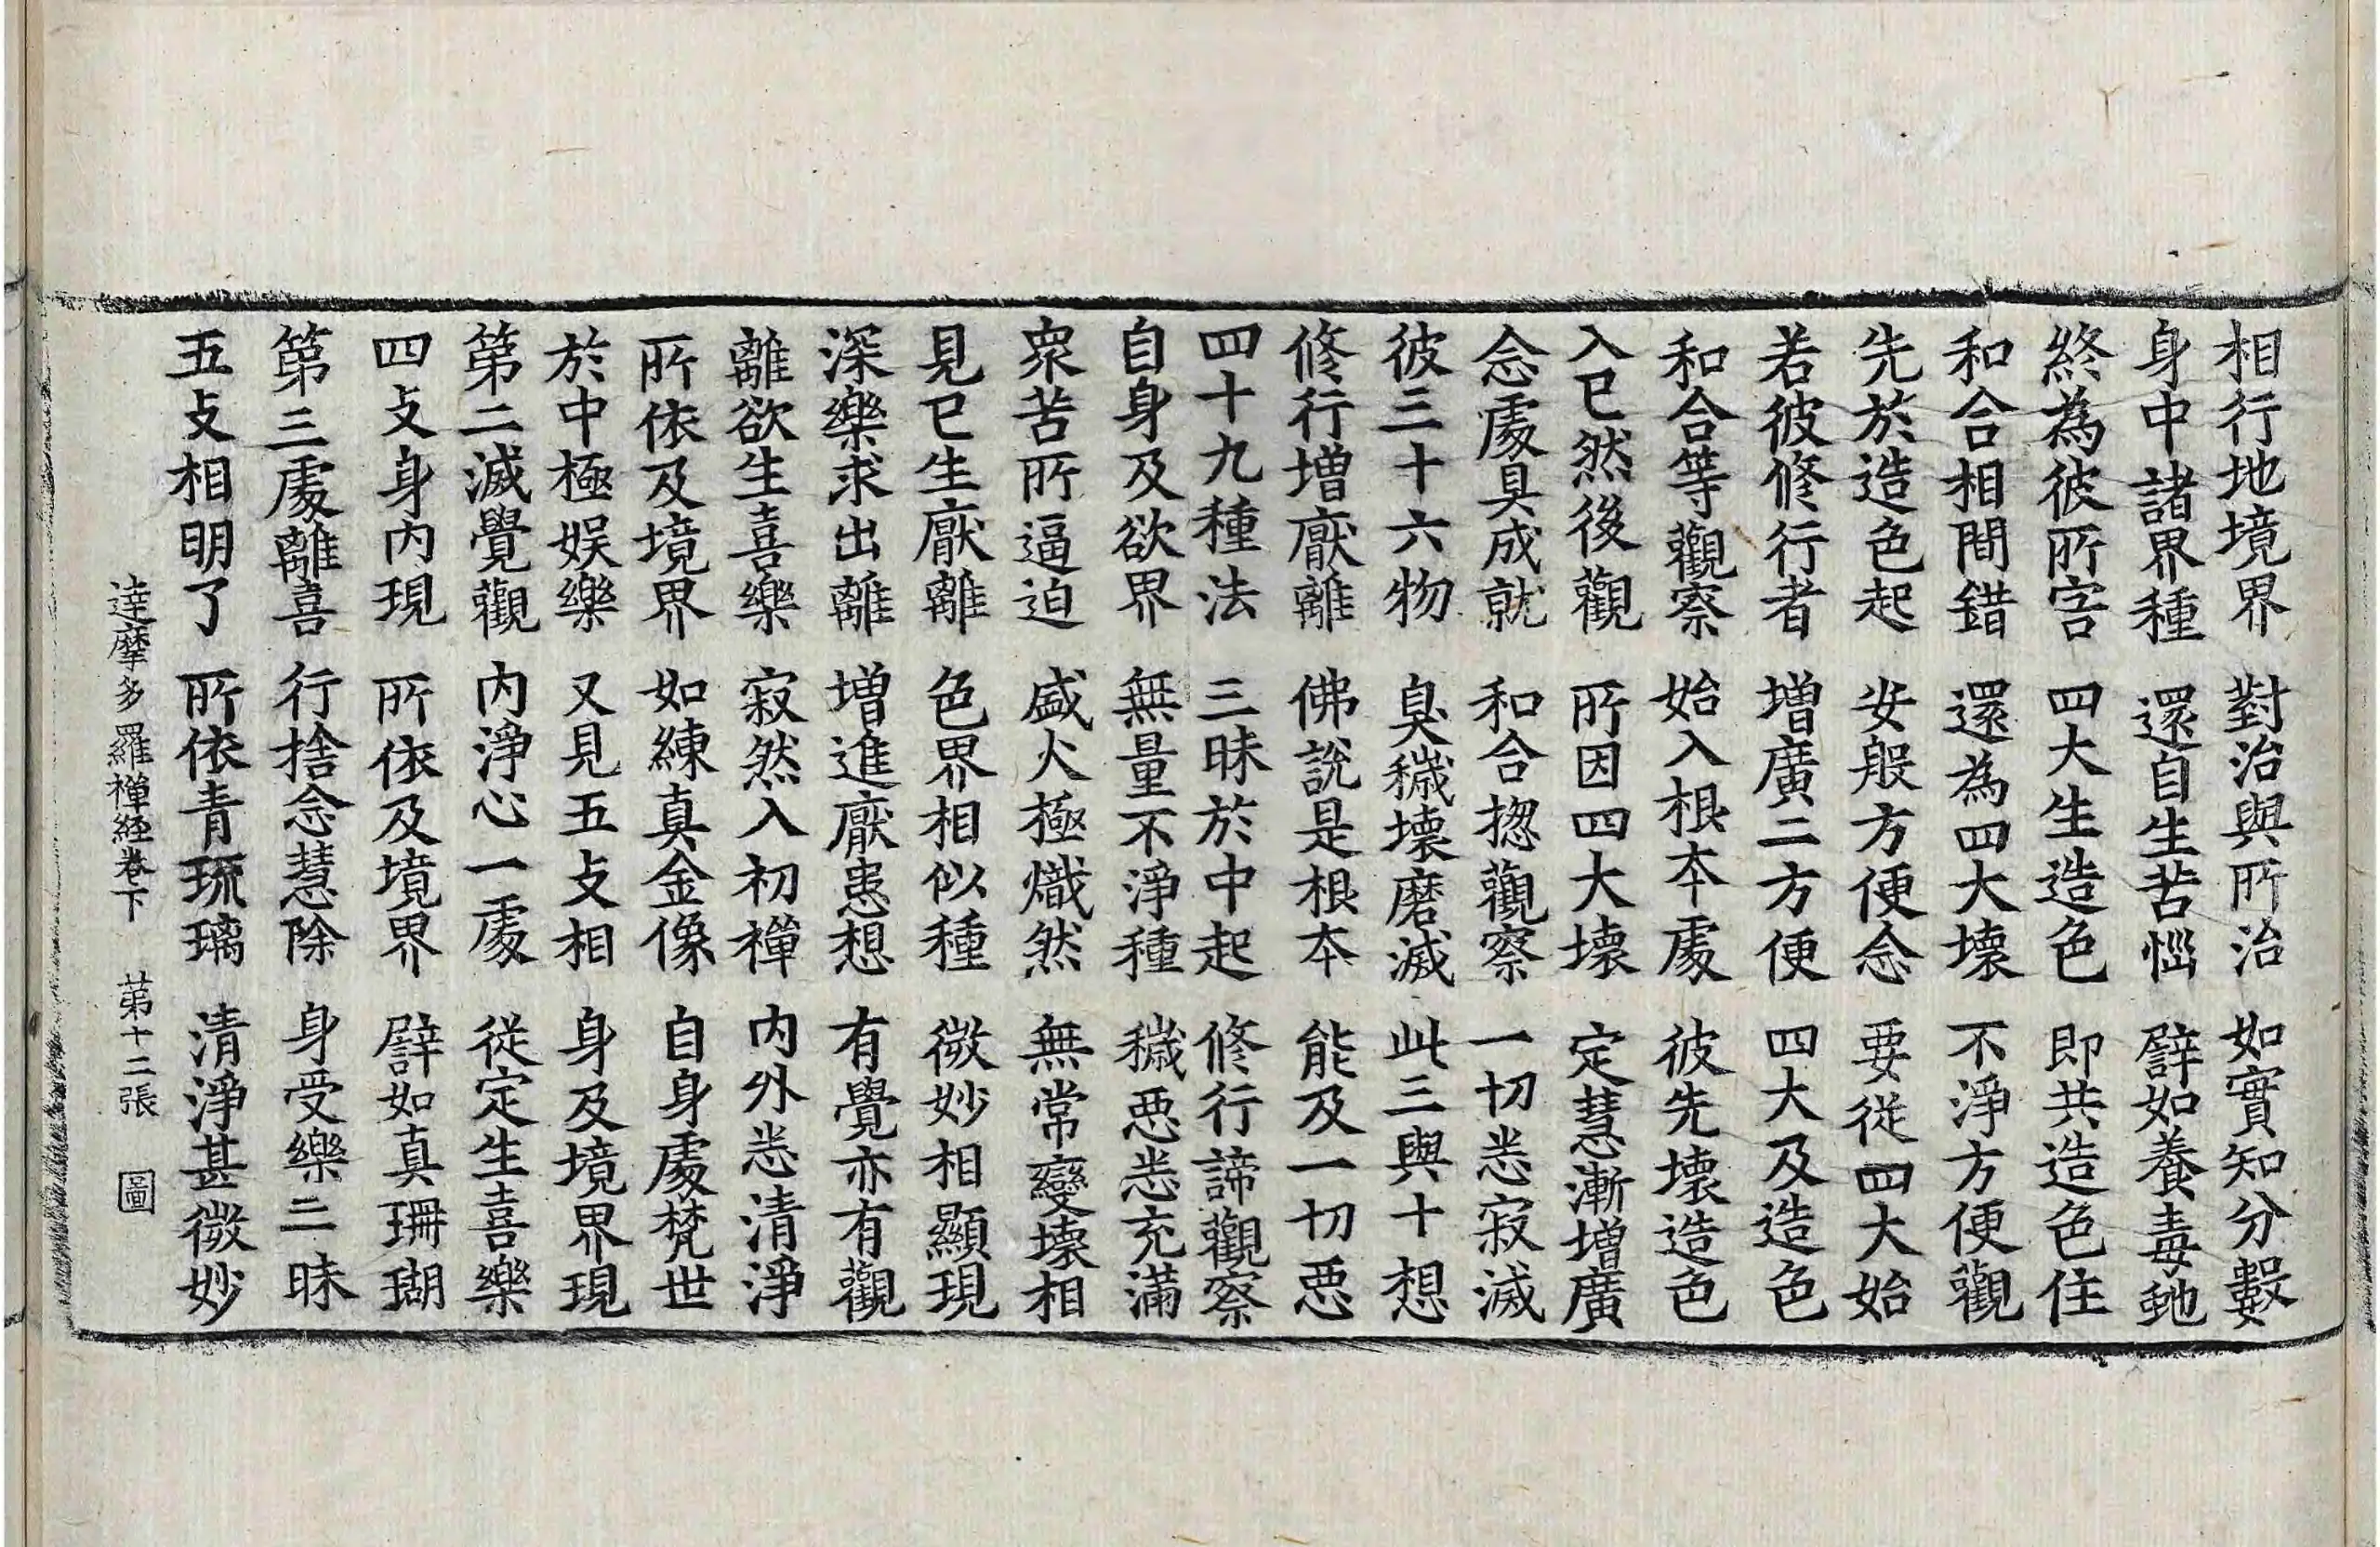 相行地境界 對治與所治 如實知分數
身中諸界種 還自生苦惱 譬如養毒虵
終為彼所害 四大生造色 即共造色住
和合相間錯 還為四大壞 不淨方便觀
先於造色起 安般方便念 要從四大始
若彼修行者 增廣二方便 四大及造色
和合等觀察 始入根本處 彼先壞造色
入已然後觀 所因四大壞 定慧漸增廣
念處具成就 和合揔觀察 一切悉寂滅
彼三十六物 臭穢壞磨滅 此三與十想
修行增厭離 佛說是根本 能及一切惡
四十九種法 三昧於中起 修行諦觀察
自身及欲界 無量不淨種 穢惡悉充滿
眾苦所逼迫 盛火極熾然 無常變壞相
見已生厭離 色界相似種 微妙相顯現
深樂求出離 增進厭患想 有覺亦有觀
離欲生喜樂 寂然入初禪 內外悉清淨
所依及境界 如練真金像 自身處梵世
於中極娛樂 又見五攴相 身及境界現
第二滅覺觀 內淨心一處 從定生喜樂
四攴身內現 所依及境界 譬如真珊瑚
第三處離喜 行捨念慧除 身受樂三昧
五攴相明了 所依青琉璃 清淨甚微妙
達摩多羅禪經卷下 苐十二張 圖